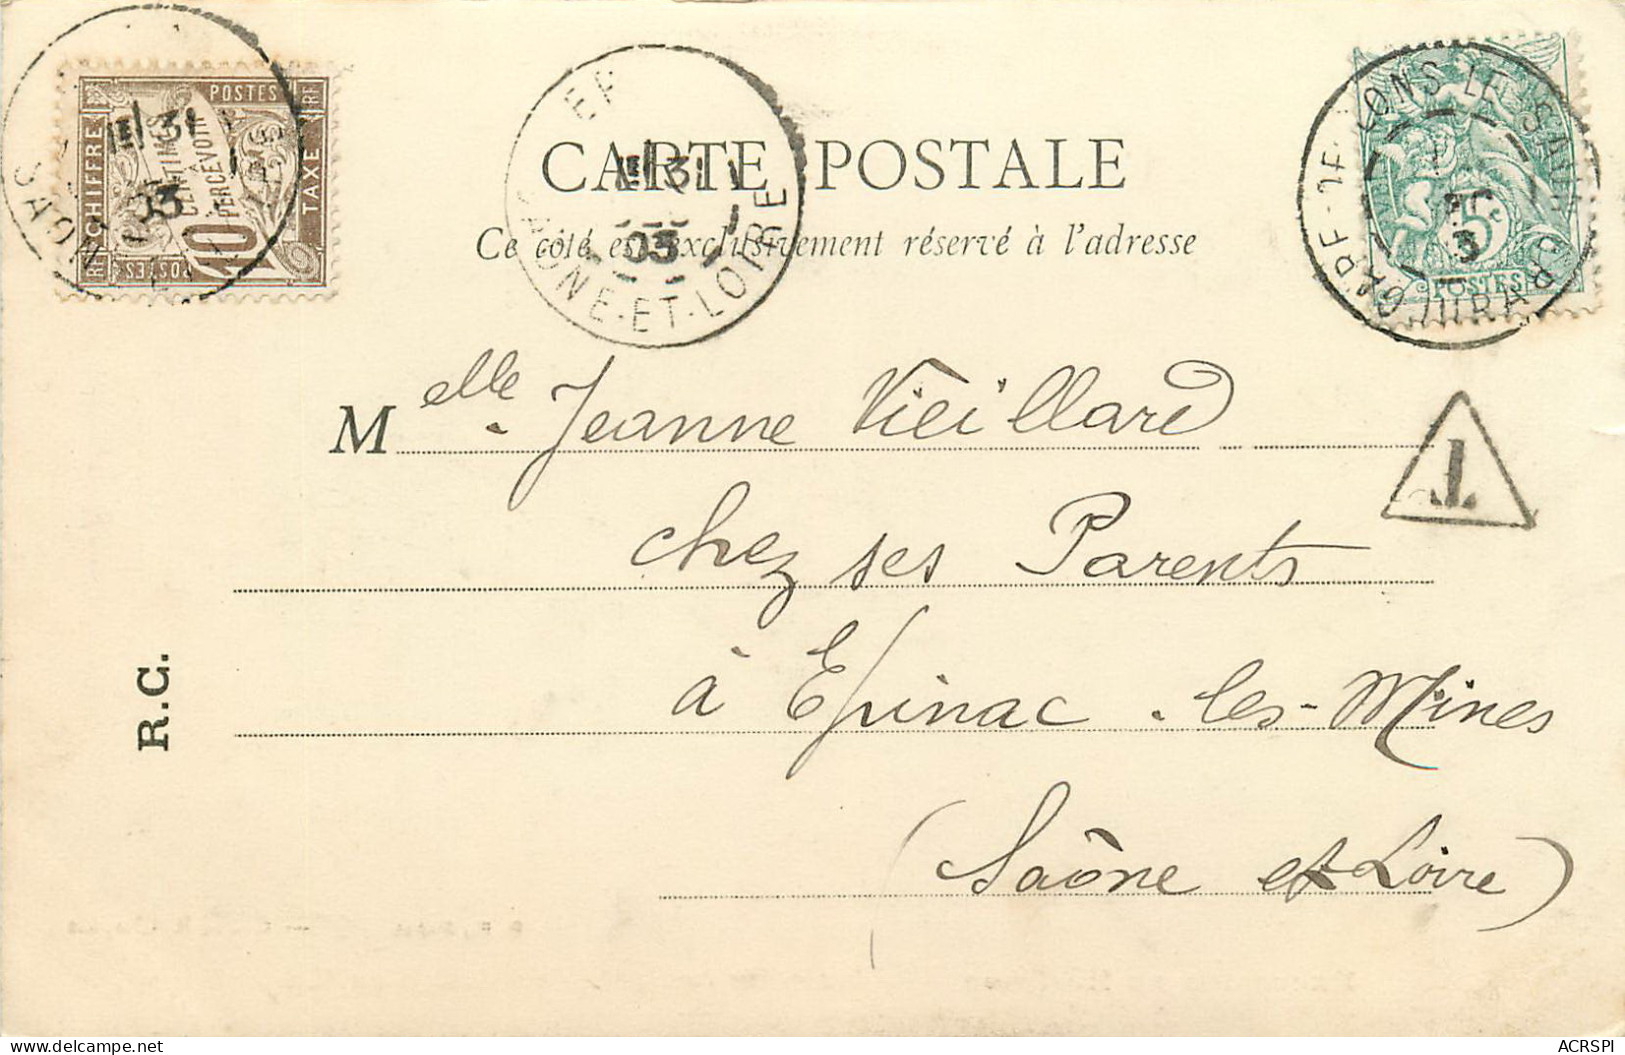 CHIFFRE
POSTES
RF
10
CENTIMES
À PERCEVOIR
TAXE
POSTES
RF
03
SAONE-ET-LOIRE
03
GARE DE LONS-LE-SAUNIER
JURA
5c
POSTES
CARTE POSTALE
Ce côté est exclusivement réservé à l'adresse
Melle Jeanne Vieillard
T
chez ses Parents
à Epinac-les-Mines
(Saône et Loire)
R.C.
ACRSPI